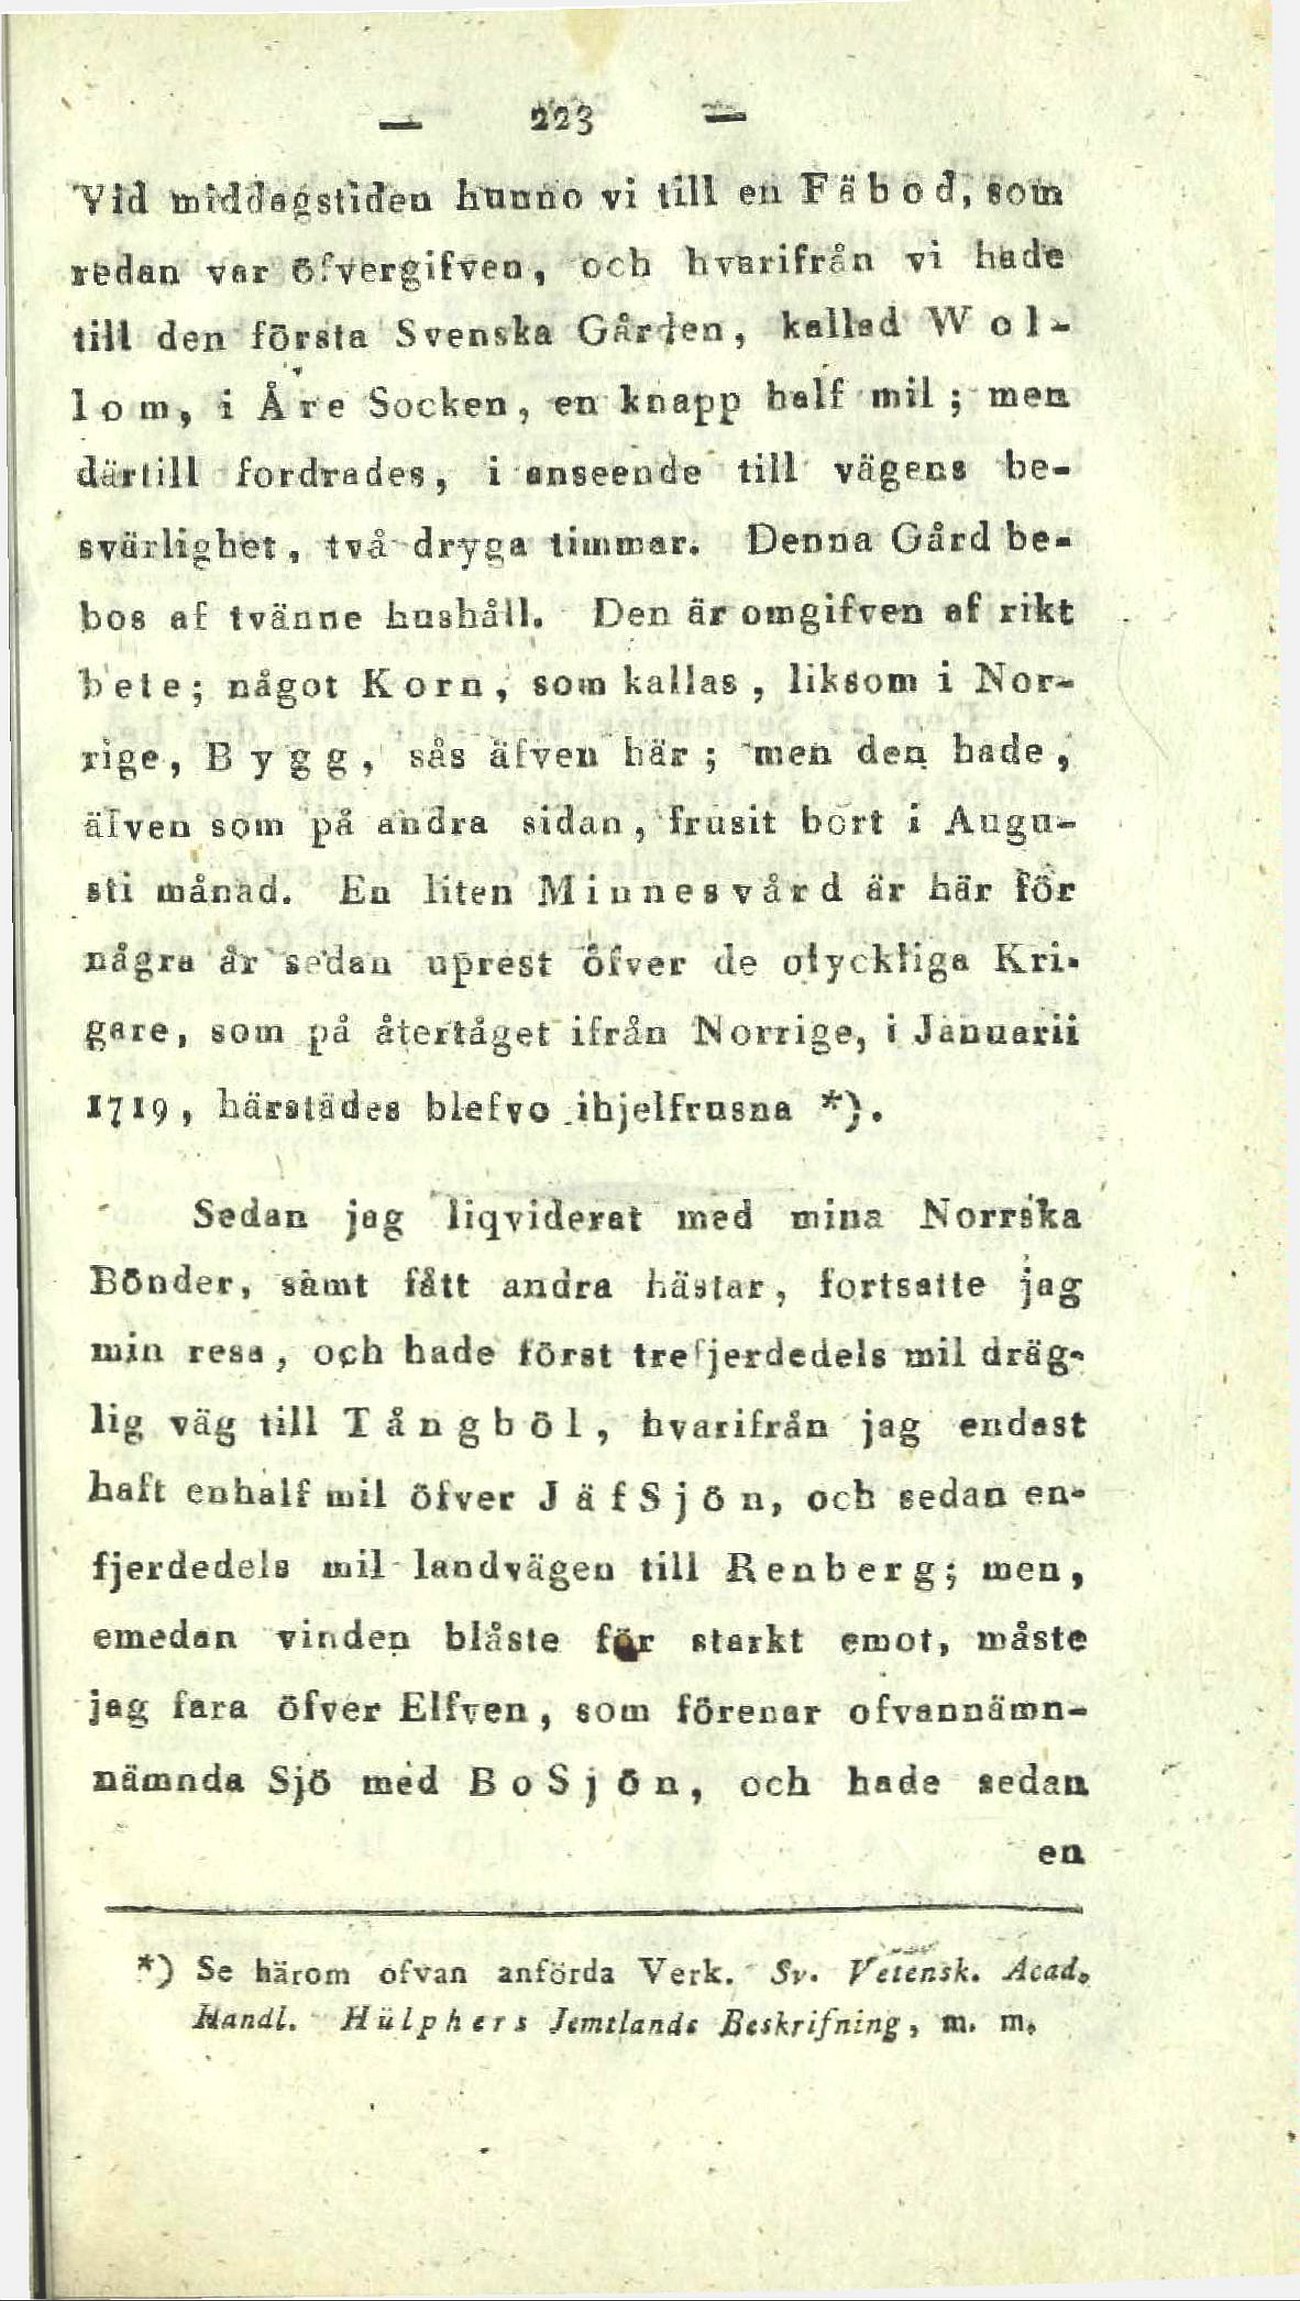 — 223 —
Vid middagstiden hunno vi till en Fäbod, som
redan var öfvergifven, och hvarifrån vi hade
till den första Svenska Gården, kallad Wol-
lom, i Åre Socken, en knapp half mil; men
därtill fordrades, i anseende till vägens be-
svärlighet, två dryga timmar. Denna Gård be-
bos af tvänne hushåll. Den är omgifven af rikt
bete; något Korn, som kallas, liksom i Nor-
rige, Bygg, sås äfven här; men den hade,
äfven som på andra sidan, frusit bort i Augu-
sti månad. En liten Minnesvård är här för
några år sedan uprest öfver de olyckliga Kri-
gare, som på återtåget ifrån Norrige, i Januarii
1719, härstädes blefvo ihjelfrusna *).
Sedan jag liqviderat med mina Norrska
Bönder, samt fått andra hästar, fortsatte jag
min resa, och hade först trefjerdedels mil dräg-
lig väg till Tångböl, hvarifrån jag endast
haft enhalf mil öfver JäfSjön, och sedan en-
fjerdedels mil landvägen till Renberg; men,
emedan vinden blåste för starkt emot, måste
jag fara öfver Elfven, som förenar ofvannämn-
nämnda Sjö med BoSjön, och hade sedan
en
*) Se härom ofvan anförda Verk. Sv. Vetensk. Acad.
Handl. Hülphers Jemtlands Beskrifning, m. m.